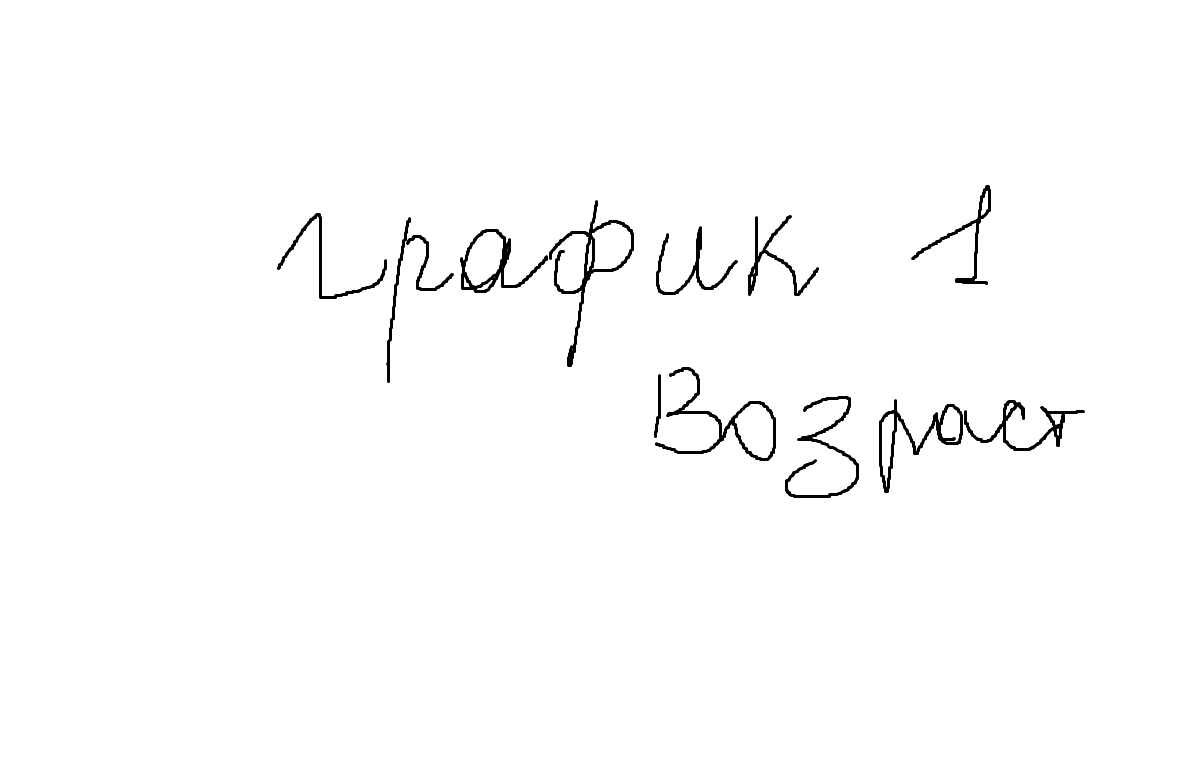 график 1
Возраст